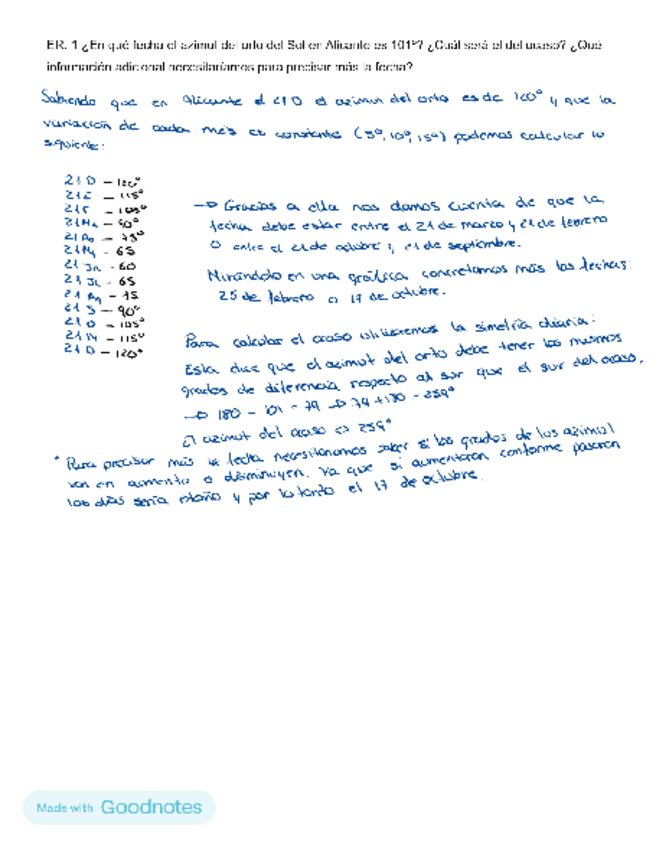 ER. 1 ¿En qué fecha el azimut del orto del Sol en Alicante es 101º? ¿Cuál será el del ocaso? ¿Qué
información adicional necesitaríamos para precisar más la fecha?
Sabiendo que en Alicante el 21 D el azimut del orto es de 120° y que la
variación de cada mes es constante (5º, 10º, 15º) podemos calcular lo
siguiente:
21 D - 120º
21 E - 115º
21 F - 105º
21 Ma - 90º
21 Ab - 75º
21 My - 65
21 Jn - 60
21 JL - 65
21 Ag - 75
21 S - 90º
21 O - 105º
21 N - 115º
21 D - 120º
→ Gracias a ella nos damos cuenta de que la
fecha debe estar entre el 21 de marzo y 21 de febrero
o entre el 21 de octubre y 21 de septiembre.
Mirándolo en una gráfica concretamos más las fechas:
25 de febrero o 17 de octubre.
Para calcular el ocaso utilizaremos la simetría diaria:
Esta dice que el azimut del orto debe tener los mismos
grados de diferencia respecto al sur que el sur del ocaso.
→ 180 - 101 = 79 → 79 + 180 = 259º
El azimut del ocaso es 259º
* Para precisar más la fecha necesitaríamos saber si los grados de los azimut
van en aumento o disminuyen. Ya que si aumentaran conforme pasaran
los días sería otoño y por lo tanto el 17 de octubre.
Made with Goodnotes